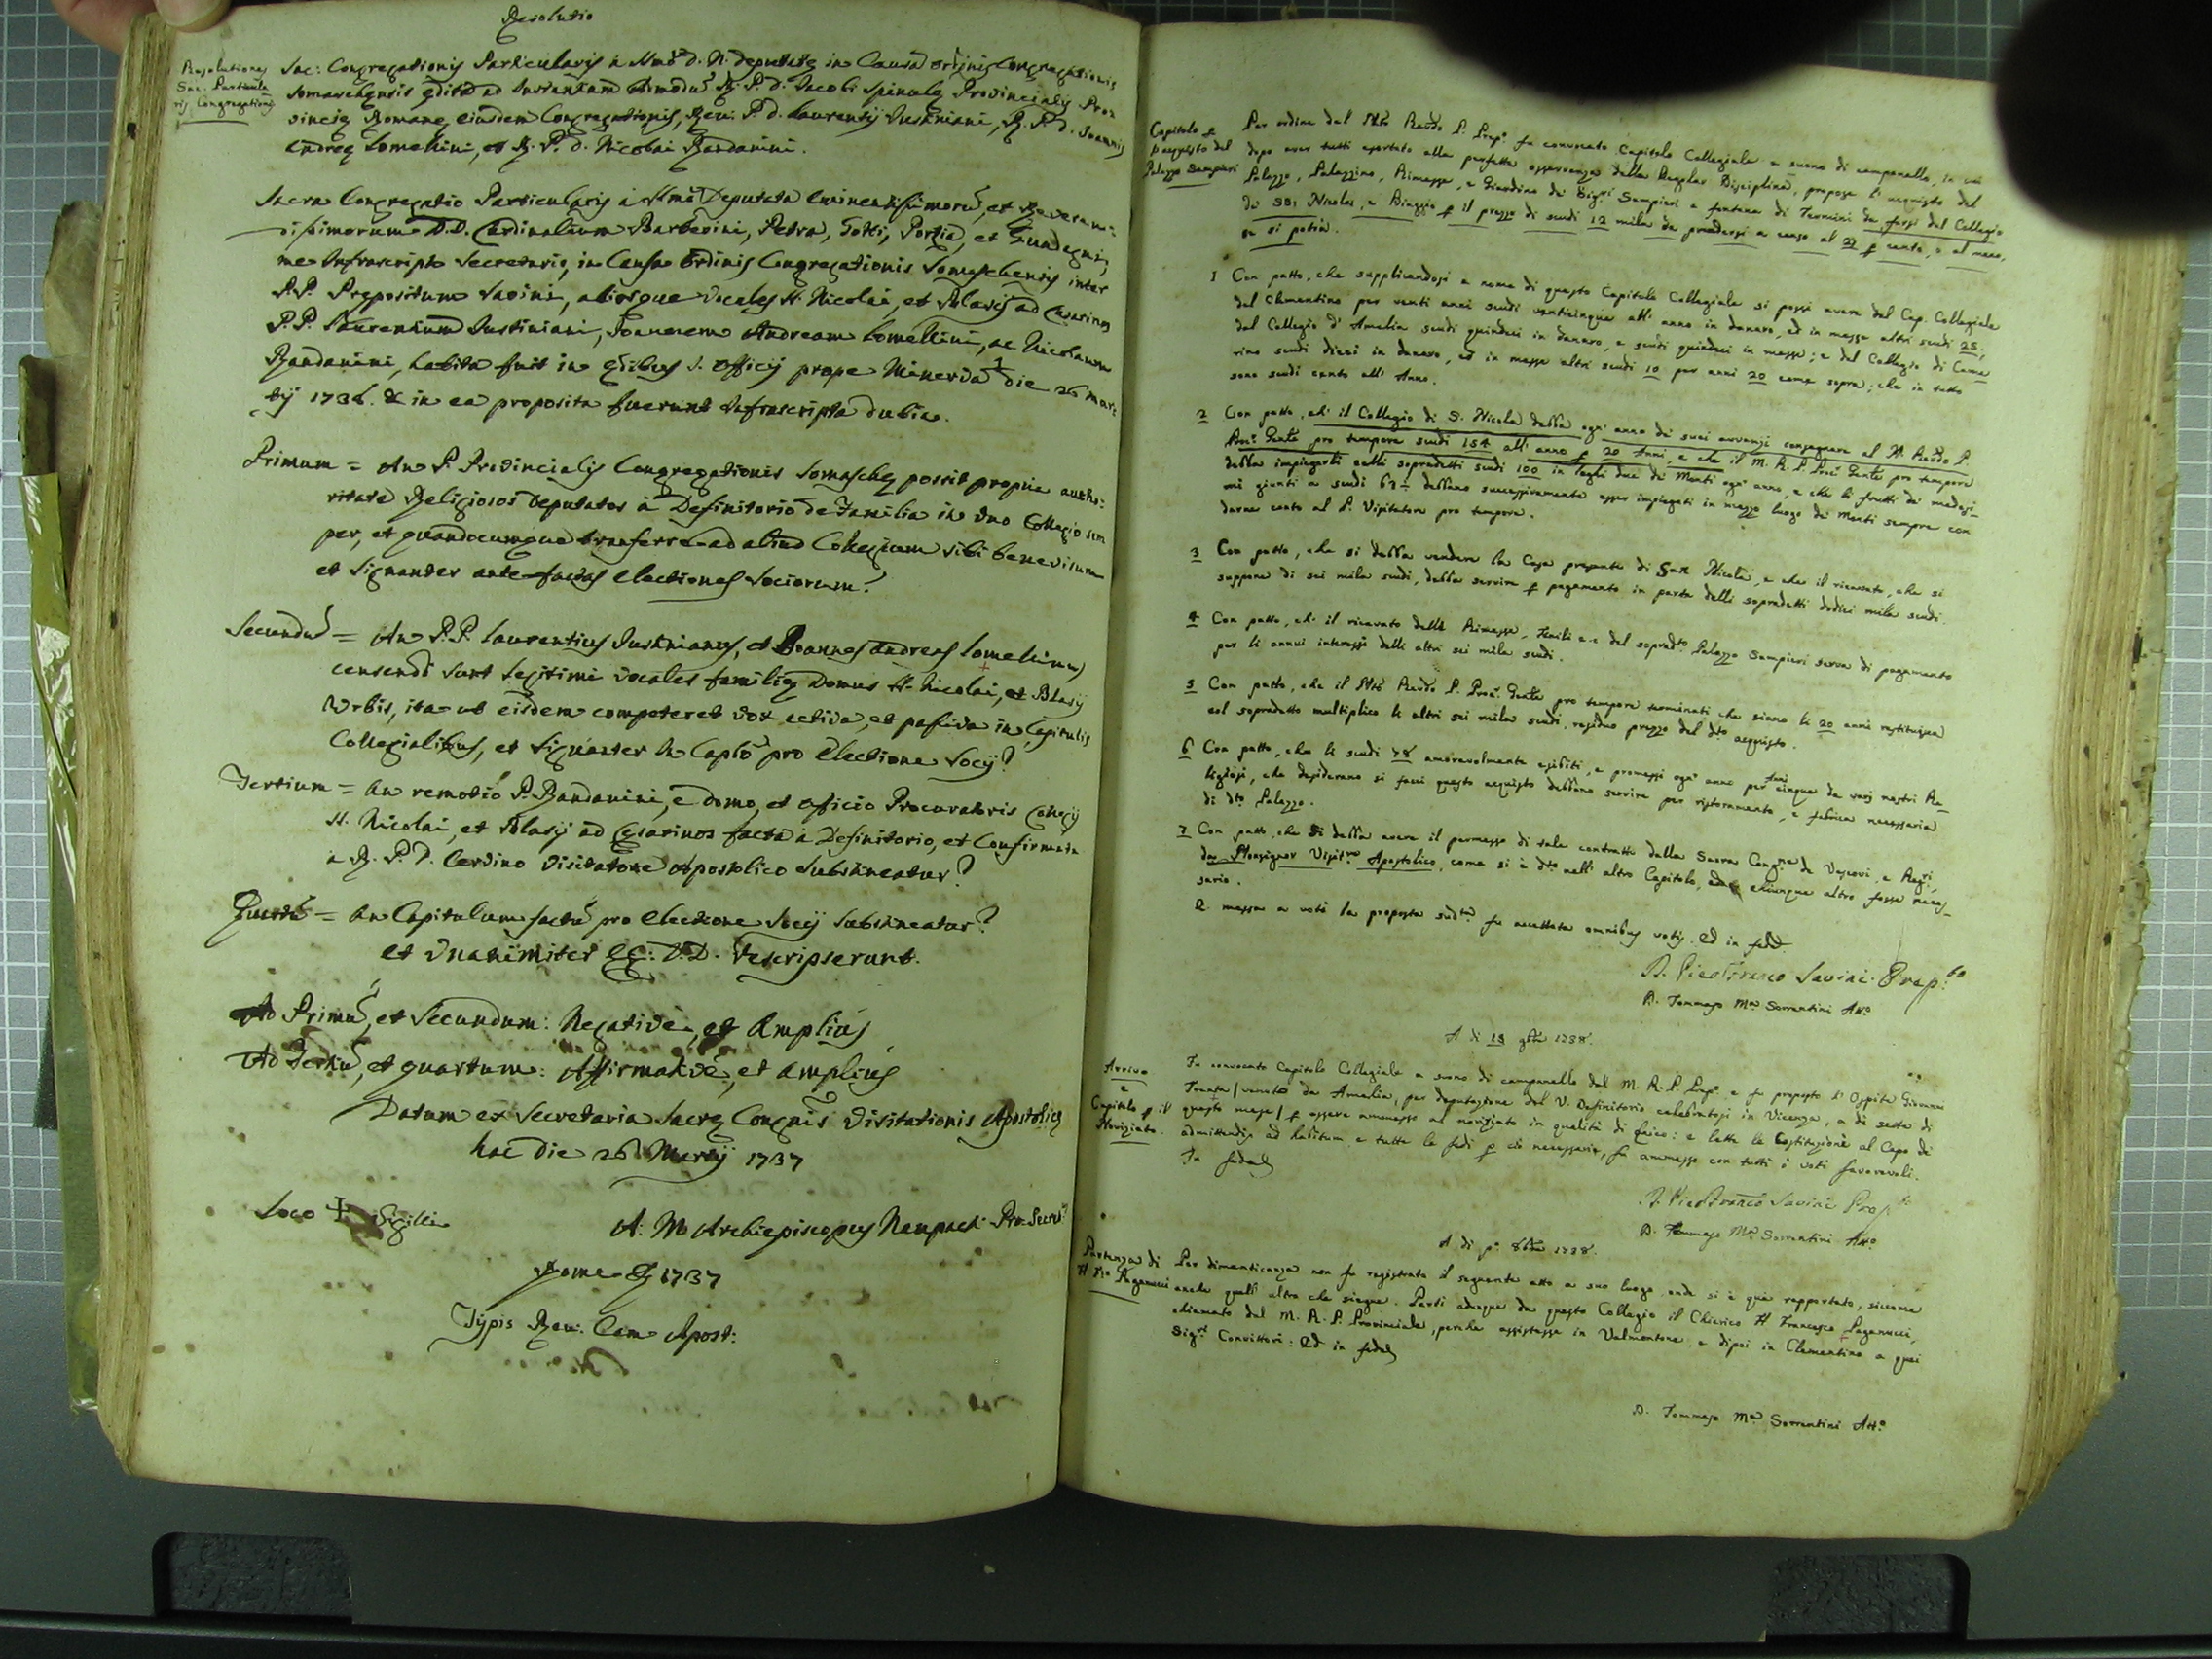 Resolutio
Resolutiones
Sac. Particula
ris Congregationis
Sac: Congregationis Particularis a SSmo D. N. deputatę in Causa ordinis Congregationis
Somaschensis edita ad Instantiam admodu R. P. D. Jacobi Spinulę Provincialis Pro=
vincię Romanę eiusdem Congregationis, Rev. P. D. Laurentij Justiniani, R. P. D. Joannis
Andreę Lomellini, et R. P. D. Nicolai Bandanini.
Sacra Congregatio Particularis à SSmo Deputata Eminentissimoru, et Reverend=
issimorum D.D. Cardinalium Barberini, Petra, Gotti, Porzia, et Guadagni,
me Infrascripto Secretario, in Causa Ordinis Congregationis Somaschensis inter
P.P. Prepositum Savini, aliosque Vocales SS. Nicolai, et Blasij ad Cęsarinos
P.P. Laurentium Justiniani, Joannem Andream Lomellini, ac Nicolaum
Bandanini, habita fuit in Ędibus S. Officij prope Minerva die 26 Mar=
tij 1736. & in ea proposita fuerunt Infrascripta dubia.
Primum = An P. Provincialis Congregationis Somaschę possit propria autho=
ritate Religiosos Deputatos à Definitorio de Familia in uno Collegio sem
per, et quandocumque transferre ad aliud Collegium sibi benevisum
et signanter ante factas electiones Sociorum?
Secundu = An P.P. Laurentius Justinianus, et Joannes Andreas Lomellinus
censendi sunt legitimi Vocales familię Domus SS. Nicolai, et Blasij
Urbis, ita ut eisdem competeret vox activa, et passiva in Capitulis
Collegialibus, et signanter in Caplo pro Electione Socij?
Tertium = An remotio P. Bandanini, e domo, et officio Procuratoris Collegij
SS. Nicolai, et Blasij ad Cęsarinos facta à Definitorio, et Confirmata
a R. P. D. Cervino Visitatore Apostolico substineatur?
Quartu = An Capitulum factu pro electione Socij substineatur?
et Unanimiter EE. D.D. rescripserunt.
Ad Primu, et Secundum: Negativè, et Amplius
Ad Tertiu, et quartum: Affirmativè, et amplius
Datum ex Secretaria Sacrę Congnis Visitationis Apostolicę
hac Die 26 Martij 1737
Loco + Sigilli
A: M Archiepiscopus Neupact: Pro-Secret.
Romę 1737
Typis Rev. Cam Apost:
Capitolo p
l'acquisto del
Palazzo Sampieri
Per ordine del Mto Revdo P. Prepo fu convocato Capitolo Collegiale a suono di campanello, in cui
dopo aver tutti esortato alla perfetta osservanza della Regolar Disciplina, propose l'acquisto del
Palazzo, Palazzino, Rimesse, e Giardino de' Sigri Sampieri a fontana di Termini da farsi dal Collegio
de SS. Nicolao, e Biaggio p il prezzo di scudi 12 mila da prendersi a censo al 2½ p cento, o al meno,
se si potrà.
1 Con patto, che supplicandosi a nome di questo Capitolo Collegiale si possi avere dal Cap. Collegiale
del Clementino per venti anni scudi venticinque all'anno in danaro, ed in messe altri scudi 25,
dal Collegio d'Amelia scudi quindeci in danaro, e scudi quindeci in messe; e dal Collegio di Came
rino scudi dieci in danaro, ed in messe altri scudi 10 per anni 20 come sopra; che in tutto
sono scudi cento all'Anno.
2 Con patto, ch'il Collegio di S. Nicola debba ogn'anno de' suoi avvanzi consegnare al M. Revdo P.
Proc. Gente pro tempore scudi 154 all'anno p 20 Anni, e che il M. R. P. Proc. Gente pro tempore
debba impiegarli colli sopradetti scudi 100 in loghi due de' Monti ogn'anno, e che li frutti de' medesi-
mi giunti a scudi 63½ debbano successivamente esser impiegati in mezzo luogo de' Monti sempre con
darne conto al P. Visitatore pro tempore.
3 Con patto, che si debba vendere la Casa presente di San Nicola, e che il ricavato, che si
suppone di sei mila scudi, debba servire p pagamento in parte delli sopradetti dodici mila scudi.
4 Con patto, ch'il ricavato delle Rimesse, Fenili &c. del sopradto Palazzo Sampieri serva di pagamento
per li annui interessi delli altri sei mila scudi.
5 Con patto, che il Mto Revdo P. Proc. Gente pro tempore terminati che siano li 20 anni restituisca
col sopradetto multiplico li altri sei mila scudi, residuo prezzo del dto acquisto.
6 Con patto, che li scudi 78 amorevolmente esibiti, e promessi ogn'anno per Anni cinque da varj nostri Re-
ligiosi, che desiderano si facci questo acquisto debbano servire per ristoramento, e fabrica necessaria
di dto Palazzo.
7 Con patto, che si debba avere il permesso di tale contratto dalla Sacra Congne de Vescovi, e Regri,
da Monsignor Visitre Apostolico, come si è dto nell'altro Capitolo, e chiunque altro fosse neces-
sario.
E messa a voti la proposta sudta fu accettata omnibus votis. Ed in fede
D. Pierfranco Savini Prepto
D. Tommaso Ma Sorrentini Atto
A di 13 9bre 1738.
Arrivo
e
Capitolo p il
Noviziato.
Fu convocato Capitolo Collegiale a suono di campanello dal M. R. P. Prepo e fu proposto l'Ospite Giovanni
Trenta / venuto da Amelia, per deputazione del V. Definitorio celebratosi in Vicenza, a di sette di
questo mese / p essere ammesso al noviziato in qualità di laico: e lette le Costituzioni al Capo de
admittendis ad habitum, e tutte le fedi p ciò necessarie, fu ammesso con tutti i voti favorevoli.
In fede
D. Pierfranco Savini Prepto
D. Tommaso Ma Sorrentini Atto
A di po 8bre 1738.
Partenza di
Fr. Paganucci
Per dimenticanza non fu registrato il seguente atto a suo luogo, onde si è qui rapportato, siccome
anche quell'altro che siegue. Partì adunque da questo Collegio il Chierico Francesco Paganucci,
chiamato dal M. R. P. Provinciale, perche assistesse in Valmontone, e dipoi in Clementino a quei
Sigri Convittori: Ed in fede
D. Tommaso Ma Sorrentini Atto